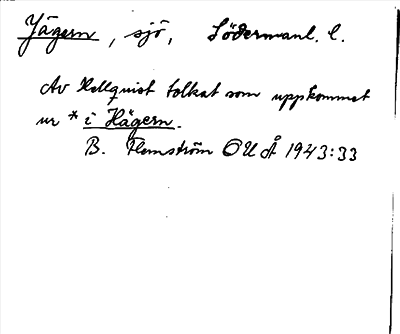 Jägern, sjö, Södermanl. l.
Av Hellquist tolkat som uppkommet
ur * i Hägern.
B. Flemström OUÅ 1943:33